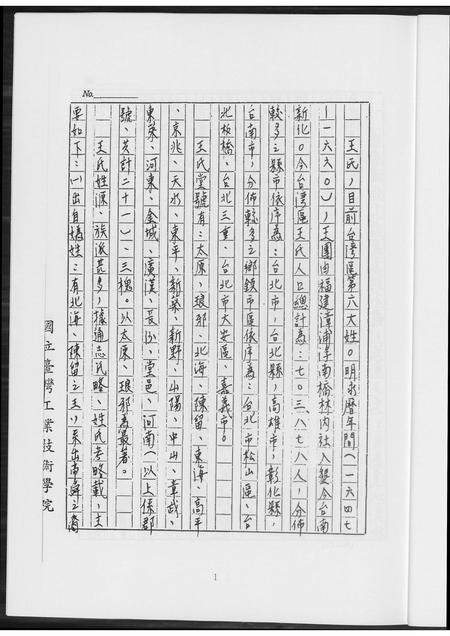 No.
王氏,目前台灣區第六大姓。明永曆年間(一六四七
——一六六○),王團由福建漳浦浮南橋林內社入墾今台南
新化。今台灣區王氏人口總計為:七○三、八七八人,分佈
較多之縣市依序為:台北市,台北縣,高雄市,彰化縣,
台南市,分佈較多之鄉鎮市區依序為:台北市松山區、台
北板橋、台北三重、台北市大安區、嘉義市。
王氏堂號有:太原,琅邪、北海、陳留、東海、高平
、京兆、天水、東平、新蔡、新野、山陽、中山、章武、
東萊、河東、金城、廣漢、長沙、堂邑、河南(以上係郡
號、共計二十一)、三槐。以太原、琅邪為最著。
王氏姓源、族派甚多,據通志氏略、姓氏考略載,主
要如下:㈠出自媯姓:有北海、陳留之王,系出帝舜之裔
國立臺灣工業技術學院
1